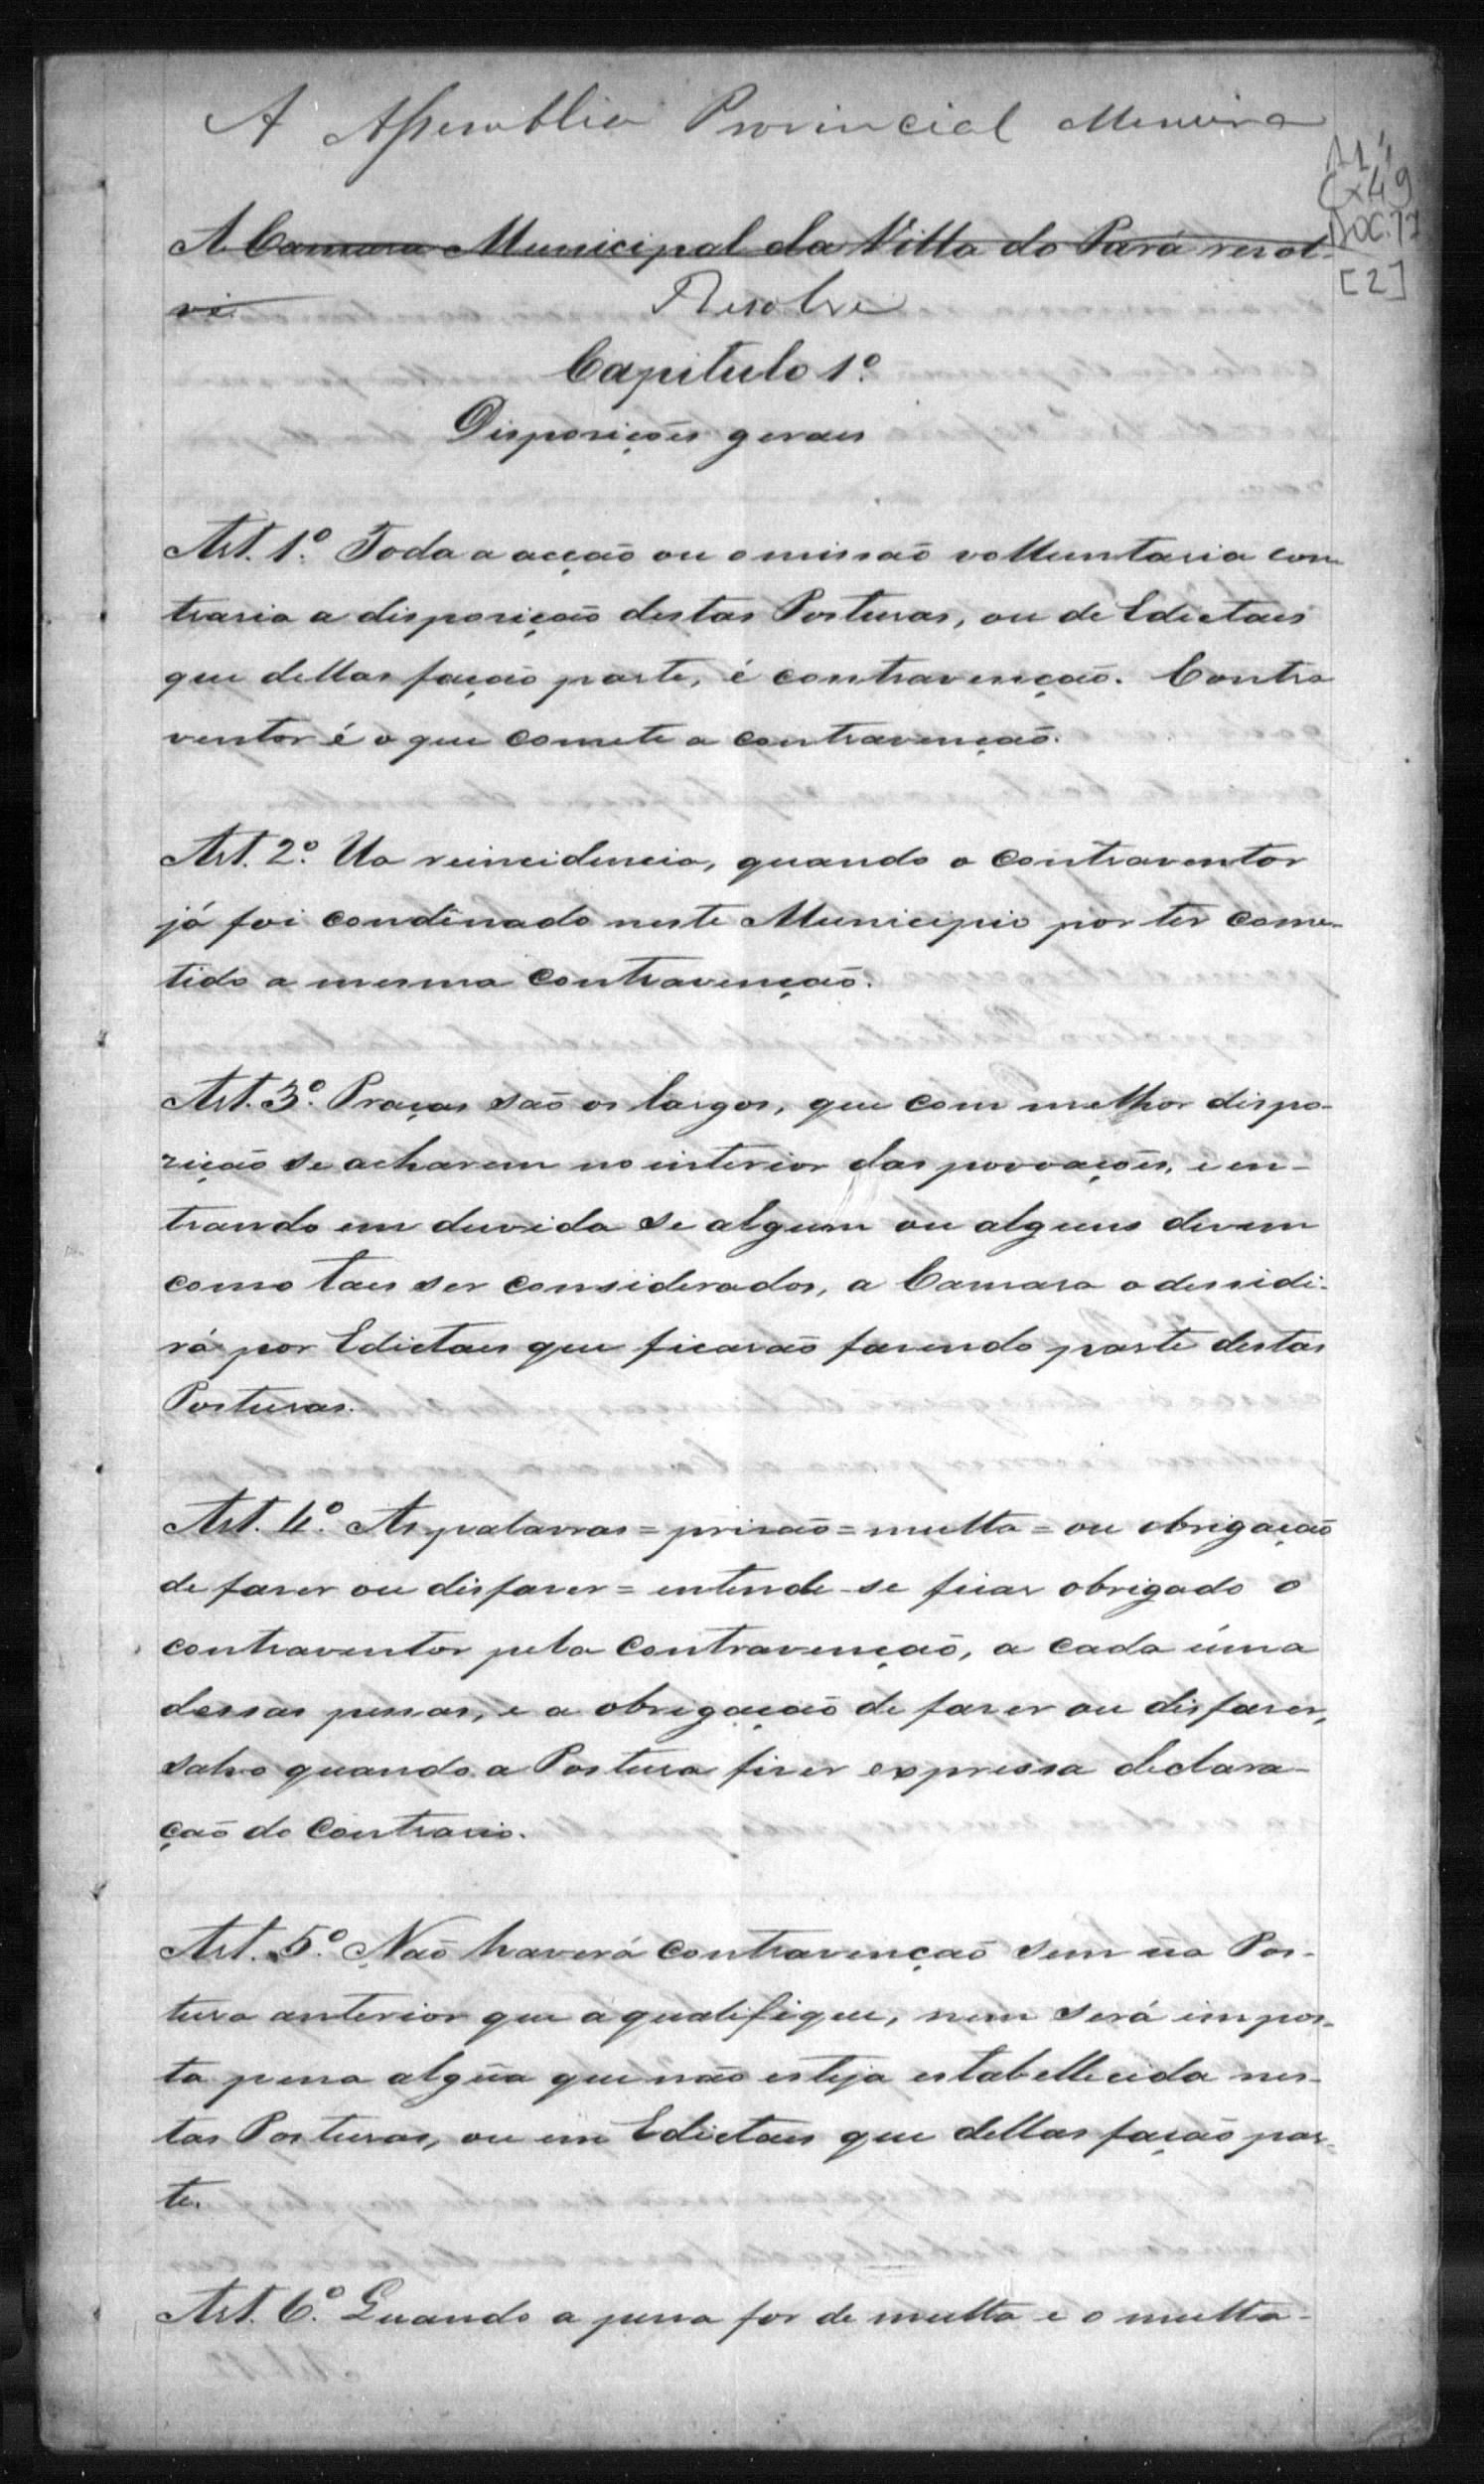 A Assemblea Provincial Mineira
1 1,1
Cx49
DOC.17
[2]
A Camara Municipal da Villa do Pará resol-
ve
Resolve
Capitulo 1º
Disposições geraes
Art. 1º. Toda a acção ou omissão volluntaria con-
traria a disposição destas Posturas, ou de Edictaes
que dellas fação parte, é contravenção. Contra
ventor é o que comete a contravenção.
Art. 2º. Ha reincidencia, quando o contraventor
já foi condenado neste Municipio por ter come-
tido a mesma contravenção.
Art. 3º. Praças são os largos, que com melhor dispo-
zição se acharem no interior das povoações, e en-
trando em duvida se algum ou alguns devem
como taes ser considerados, a Camara o dessidi-
rá por Edictaes que ficarão fasendo parte destas
Posturas.
Art. 4º. As palavras = prisão = multa = ou obrigação
de faser ou disfaser = entende-se ficar obrigado o
contraventor pela contravenção, a cada uma
dessas penas, e a obrigação de faser ou disfaser,
salvo quando a Postura fiser expressa declara-
ção do contrario.
Art. 5º. Não haverá contravenção sem ũa Pos-
tura anterior que a qualifique, nem será impos-
ta pena algũa que não esteja estabellecida nes-
tas Posturas, ou em Edictaes que dellas fação par-
te.
Art. 6º. Quando a pena for de multa e o multa-